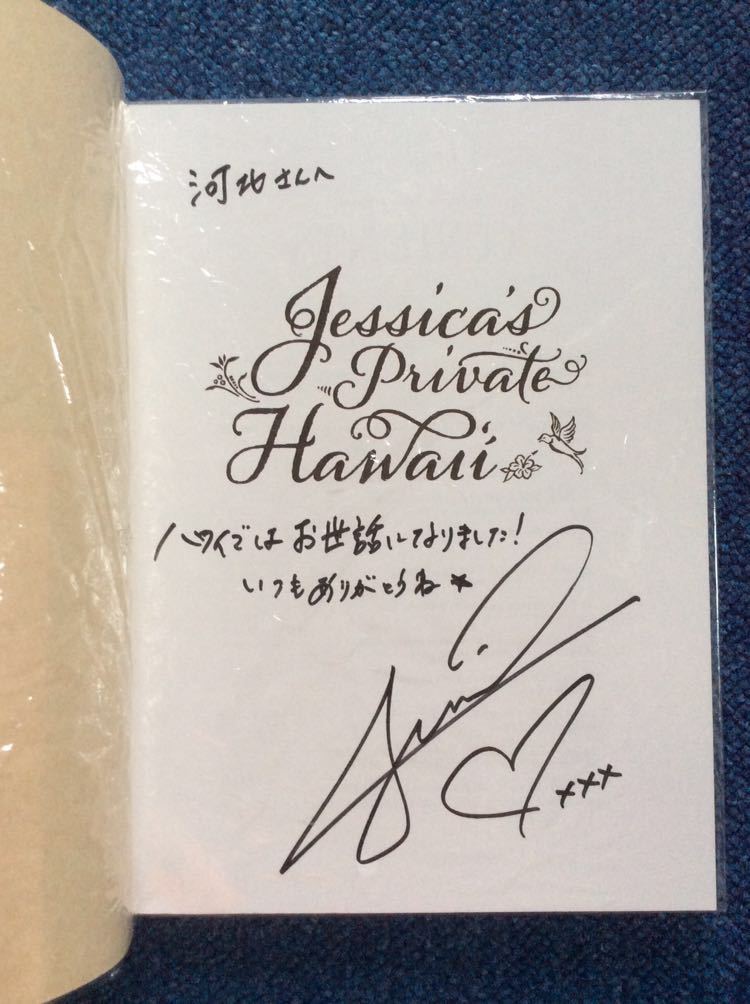 河北さんへ
Jessica's
Private
Hawaii
ハワイではお世話になりました!
いつもありがとうね
xxx